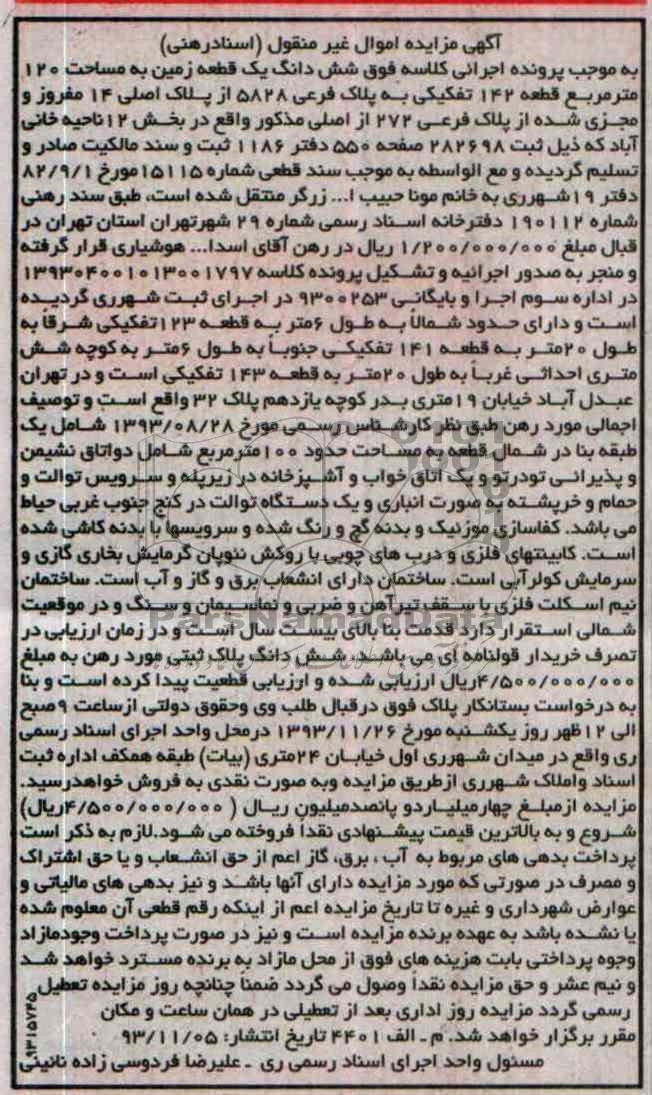 آگهی مزایده اموال غیر منقول (اسنادرهنی)
به موجب پرونده اجرائی کلاسه فوق شش دانگ یک قطعه زمین به مساحت ۱۲۰
مترمربع قطعه ۱۴۲ تفکیکی به پلاک فرعی ۵۸۲۸ از پلاک اصلی ۱۴ مفروز و
مجزی شده از پلاک فرعی ۲۷۲ از اصلی مذکور واقع در بخش ۱۲ناحیه خانی
آباد که ذیل ثبت ۲۸۲۶۹۸ صفحه ۵۵۰ دفتر ۱۱۸۶ ثبت و سند مالکیت صادر و
تسلیم گردیده و مع الواسطه به موجب سند قطعی شماره ۱۵۱۱۵مورخ ۸۲/۹/۱
دفتر ۱۹شهرری به خانم مونا حبیب ا... زرگر منتقل شده است، طبق سند رهنی
شماره ۱۹۰۱۱۲ دفترخانه اسناد رسمی شماره ۲۹ شهرتهران استان تهران در
قبال مبلغ ۱/۲۰۰/۰۰۰/۰۰۰ ریال در رهن آقای اسدا... هوشیاری قرار گرفته
و منجر به صدور اجرائیه و تشکیل پرونده کلاسه ۱۳۹۳۰۴۰۰۱۰۱۳۰۰۱۷۹۷
در اداره سوم اجرا و بایگانی ۹۳۰۰۲۵۳ در اجرای ثبت شهرری گردیده
است و دارای حدود شمالاً به طول ۶متر به قطعه ۱۲۳تفکیکی شرقاً به
طول ۲۰متر به قطعه ۱۴۱ تفکیکی جنوباً به طول ۶متر به کوچه شش
متری احداثی غرباً به طول ۲۰متر به قطعه ۱۴۳ تفکیکی است و در تهران
عبدل آباد خیابان ۱۹متری بدر کوچه یازدهم پلاک ۳۲ واقع است و توصیف
اجمالی مورد رهن طبق نظر کارشناس رسمی مورخ ۱۳۹۳/۰۸/۲۸ شامل یک
طبقه بنا در شمال قطعه به مساحت حدود ۱۰۰مترمربع شامل دواتاق نشیمن
و پذیرائی تودرتو و یک اتاق خواب و آشپزخانه در زیرپله و سرویس توالت و
حمام و خرپشته به صورت انباری و یک دستگاه توالت در کنج جنوب غربی حیاط
می باشد. کفاسازی موزئیک و بدنه گچ و رنگ شده و سرویسها با بدنه کاشی شده
است. کابینتهای فلزی و درب های چوبی با روکش نئوپان گرمایش بخاری گازی و
سرمایش کولرآبی است. ساختمان دارای انشعاب برق و گاز و آب است. ساختمان
نیم اسکلت فلزی با سقف تیرآهن و ضربی و نماسیمان و سنگ و در موقعیت
شمالی استقرار دارد قدمت بنا بالای بیست سال است و در زمان ارزیابی در
تصرف خریدار قولنامه ای می باشد، شش دانگ پلاک ثبتی مورد رهن به مبلغ
۴/۵۰۰/۰۰۰/۰۰۰ریال ارزیابی شده و ارزیابی قطعیت پیدا کرده است و بنا
به درخواست بستانکار پلاک فوق درقبال طلب وی وحقوق دولتی ازساعت ۹صبح
الی ۱۲ظهر روز یکشنبه مورخ ۱۳۹۳/۱۱/۲۶ درمحل واحد اجرای اسناد رسمی
ری واقع در میدان شهرری اول خیابان ۲۴متری (بیات) طبقه همکف اداره ثبت
اسناد واملاک شهرری ازطریق مزایده وبه صورت نقدی به فروش خواهدرسید.
مزایده ازمبلغ چهارمیلیاردو پانصدمیلیون ریال ( ۴/۵۰۰/۰۰۰/۰۰۰ریال)
شروع و به بالاترین قیمت پیشنهادی نقدا فروخته می شود.لازم به ذکر است
پرداخت بدهی های مربوط به آب ، برق، گاز اعم از حق انشعاب و یا حق اشتراک
و مصرف در صورتی که مورد مزایده دارای آنها باشد و نیز بدهی های مالیاتی و
عوارض شهرداری و غیره تا تاریخ مزایده اعم از اینکه رقم قطعی آن معلوم شده
یا نشده باشد به عهده برنده مزایده است و نیز در صورت پرداخت وجودمازاد
وجوه پرداختی بابت هزینه های فوق از محل مازاد به برنده مسترد خواهد شد
و نیم عشر و حق مزایده نقداً وصول می گردد ضمناً چنانچه روز مزایده تعطیل
رسمی گردد مزایده روز اداری بعد از تعطیلی در همان ساعت و مکان
مقرر برگزار خواهد شد. م ـ الف ۴۴۰۱ تاریخ انتشار: ۹۳/۱۱/۰۵
مسئول واحد اجرای اسناد رسمی ری ـ علیرضا فردوسی زاده نائینی
۹۳۱۵۷۴۵
ParsNamadData